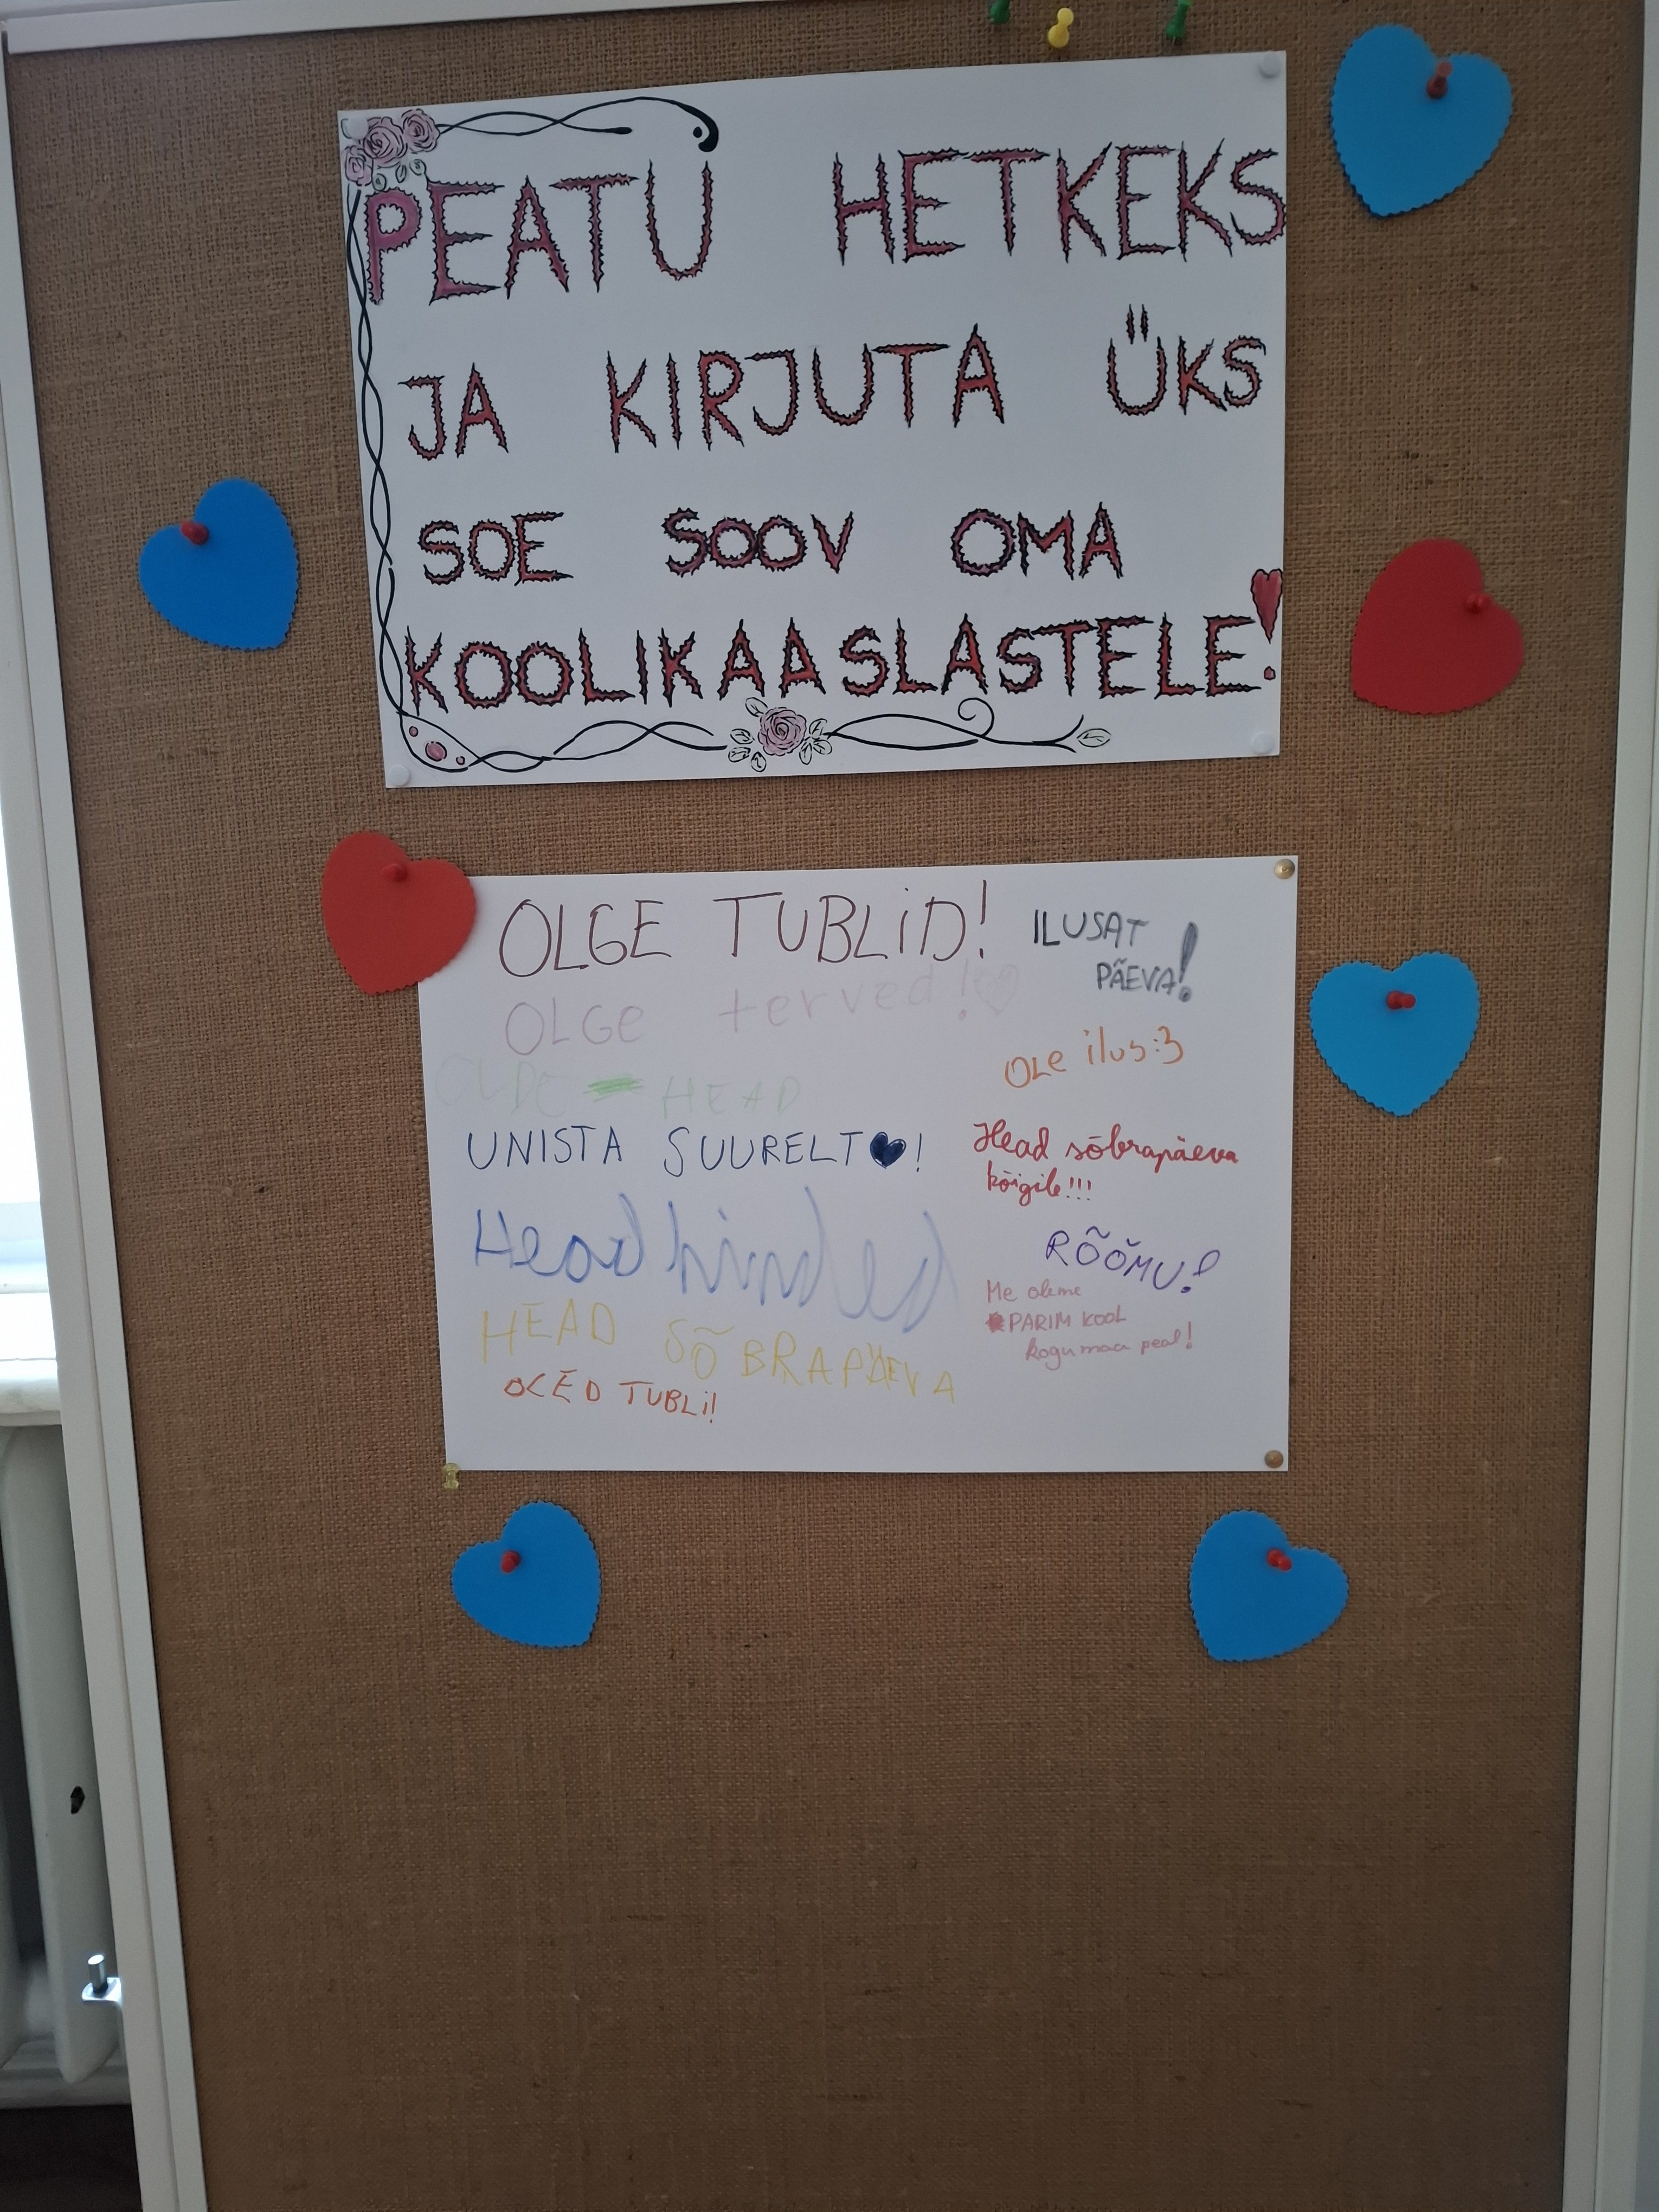 PEATU HETKEKS
JA KIRJUTA ÜKS
SOE SOOV OMA
KOOLIKAASLASTELE!
OLGE TUBLID!
OLGE terved!
OLDE HEAD
UNISTA SUURELT!
Head hinded
HEAD SÕBRAPÄEVA
OLED TUBLI!
ILUSAT
PÄEVA!
OLe ilus:3
Head sõbrapäeva
kõigile!!!
RÕÕMU!
Me oleme
PARIM KOOL
kogu maa peal!